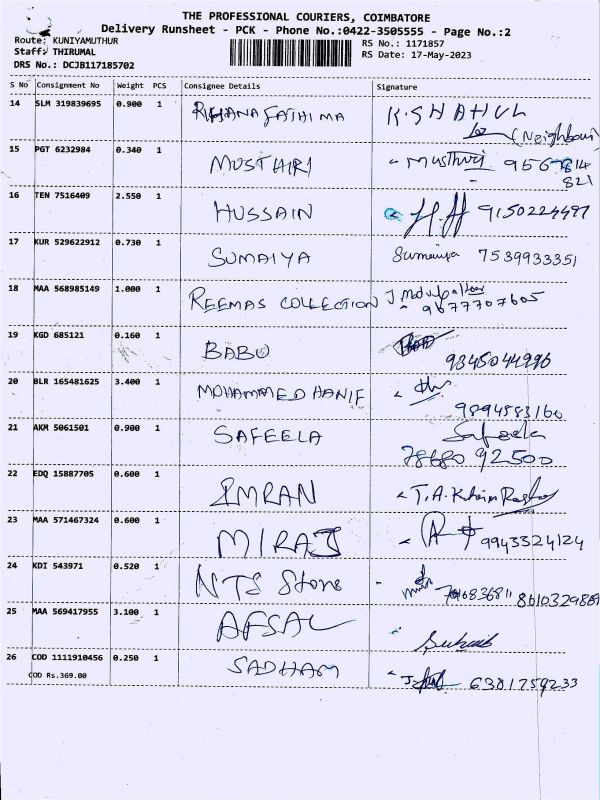 THE PROFESSIONAL COURIERS, COIMBATORE
Delivery Runsheet - PCK - Phone No.:0422-3505555 - Page No.:2
Route: KUNIYAMUTHUR
RS No.: 1171857
Staff: THIRUMAL
RS Date: 17-May-2023
DRS No.: DCJB117185702
S No Consignment No Weight PCS Consignee Details Signature
14 SLM 319839695 0.900 1 RIHANA FATHIMA K.SHAHUL
(Neighbour)
15 PGT 6232984 0.340 1 MUSTHIRI Musthiri
821
16 TEN 7516409 2.550 1 HUSSAIN 9150224497
17 KUR 529622912 0.730 1 SUMAIYA Sumaiya 7539933351
18 MAA 568985149 1.000 1 REEMAS COLLECTION
9677707605
19 KGD 685121 0.160 1 BABU
9345044996
20 BLR 165481625 3.400 1 MOHAMMED HANIF
9894583160
21 AKM 5061501 0.900 1 SAFEELA Safeela
92500
22 EDQ 15887705 0.600 1 IMRAN T.A.
23 MAA 571467324 0.600 1 MIRAJ 9943324124
24 KDI 543971 0.520 1 NTS Store
25 MAA 569417955 3.100 1 AFSAL
26 COD 1111910456 0.250 1 SADHAM 6381759233
COD Rs.369.00